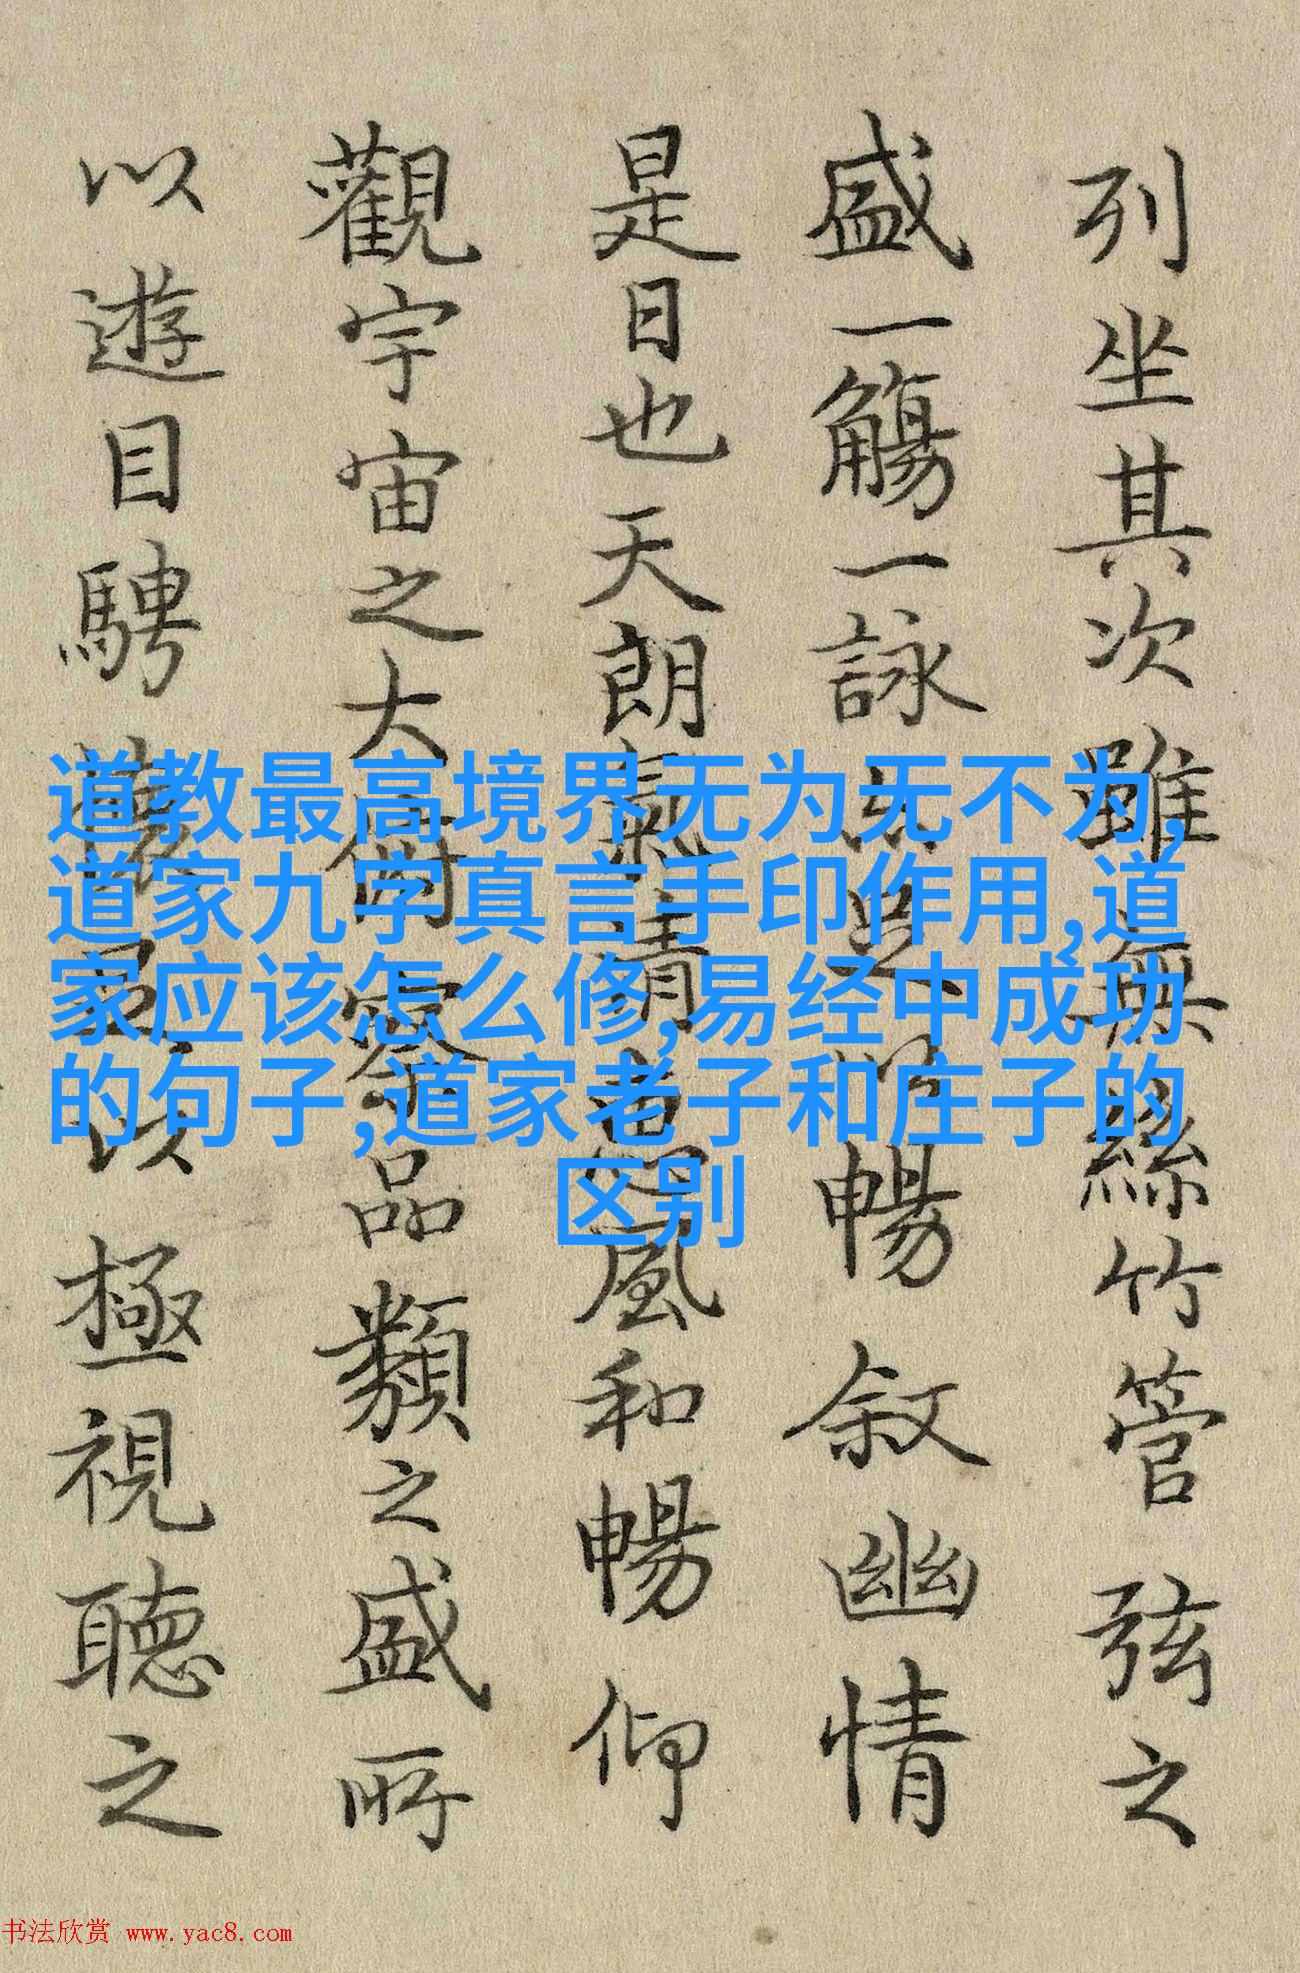 列坐其次雖無絲竹管弦之
盛一觴一詠亦足以暢叙幽情
是日也天朗氣清惠風和暢仰
觀宇宙之大俯察品類之盛所
以遊目騁懷足以極視聽之
道教最高境界无为无不为,
道家九字真言手印作用,道
家应该怎么修,易经中成功
的句子,道家老子和庄子的
区别
书法欣赏 www.yac8.com